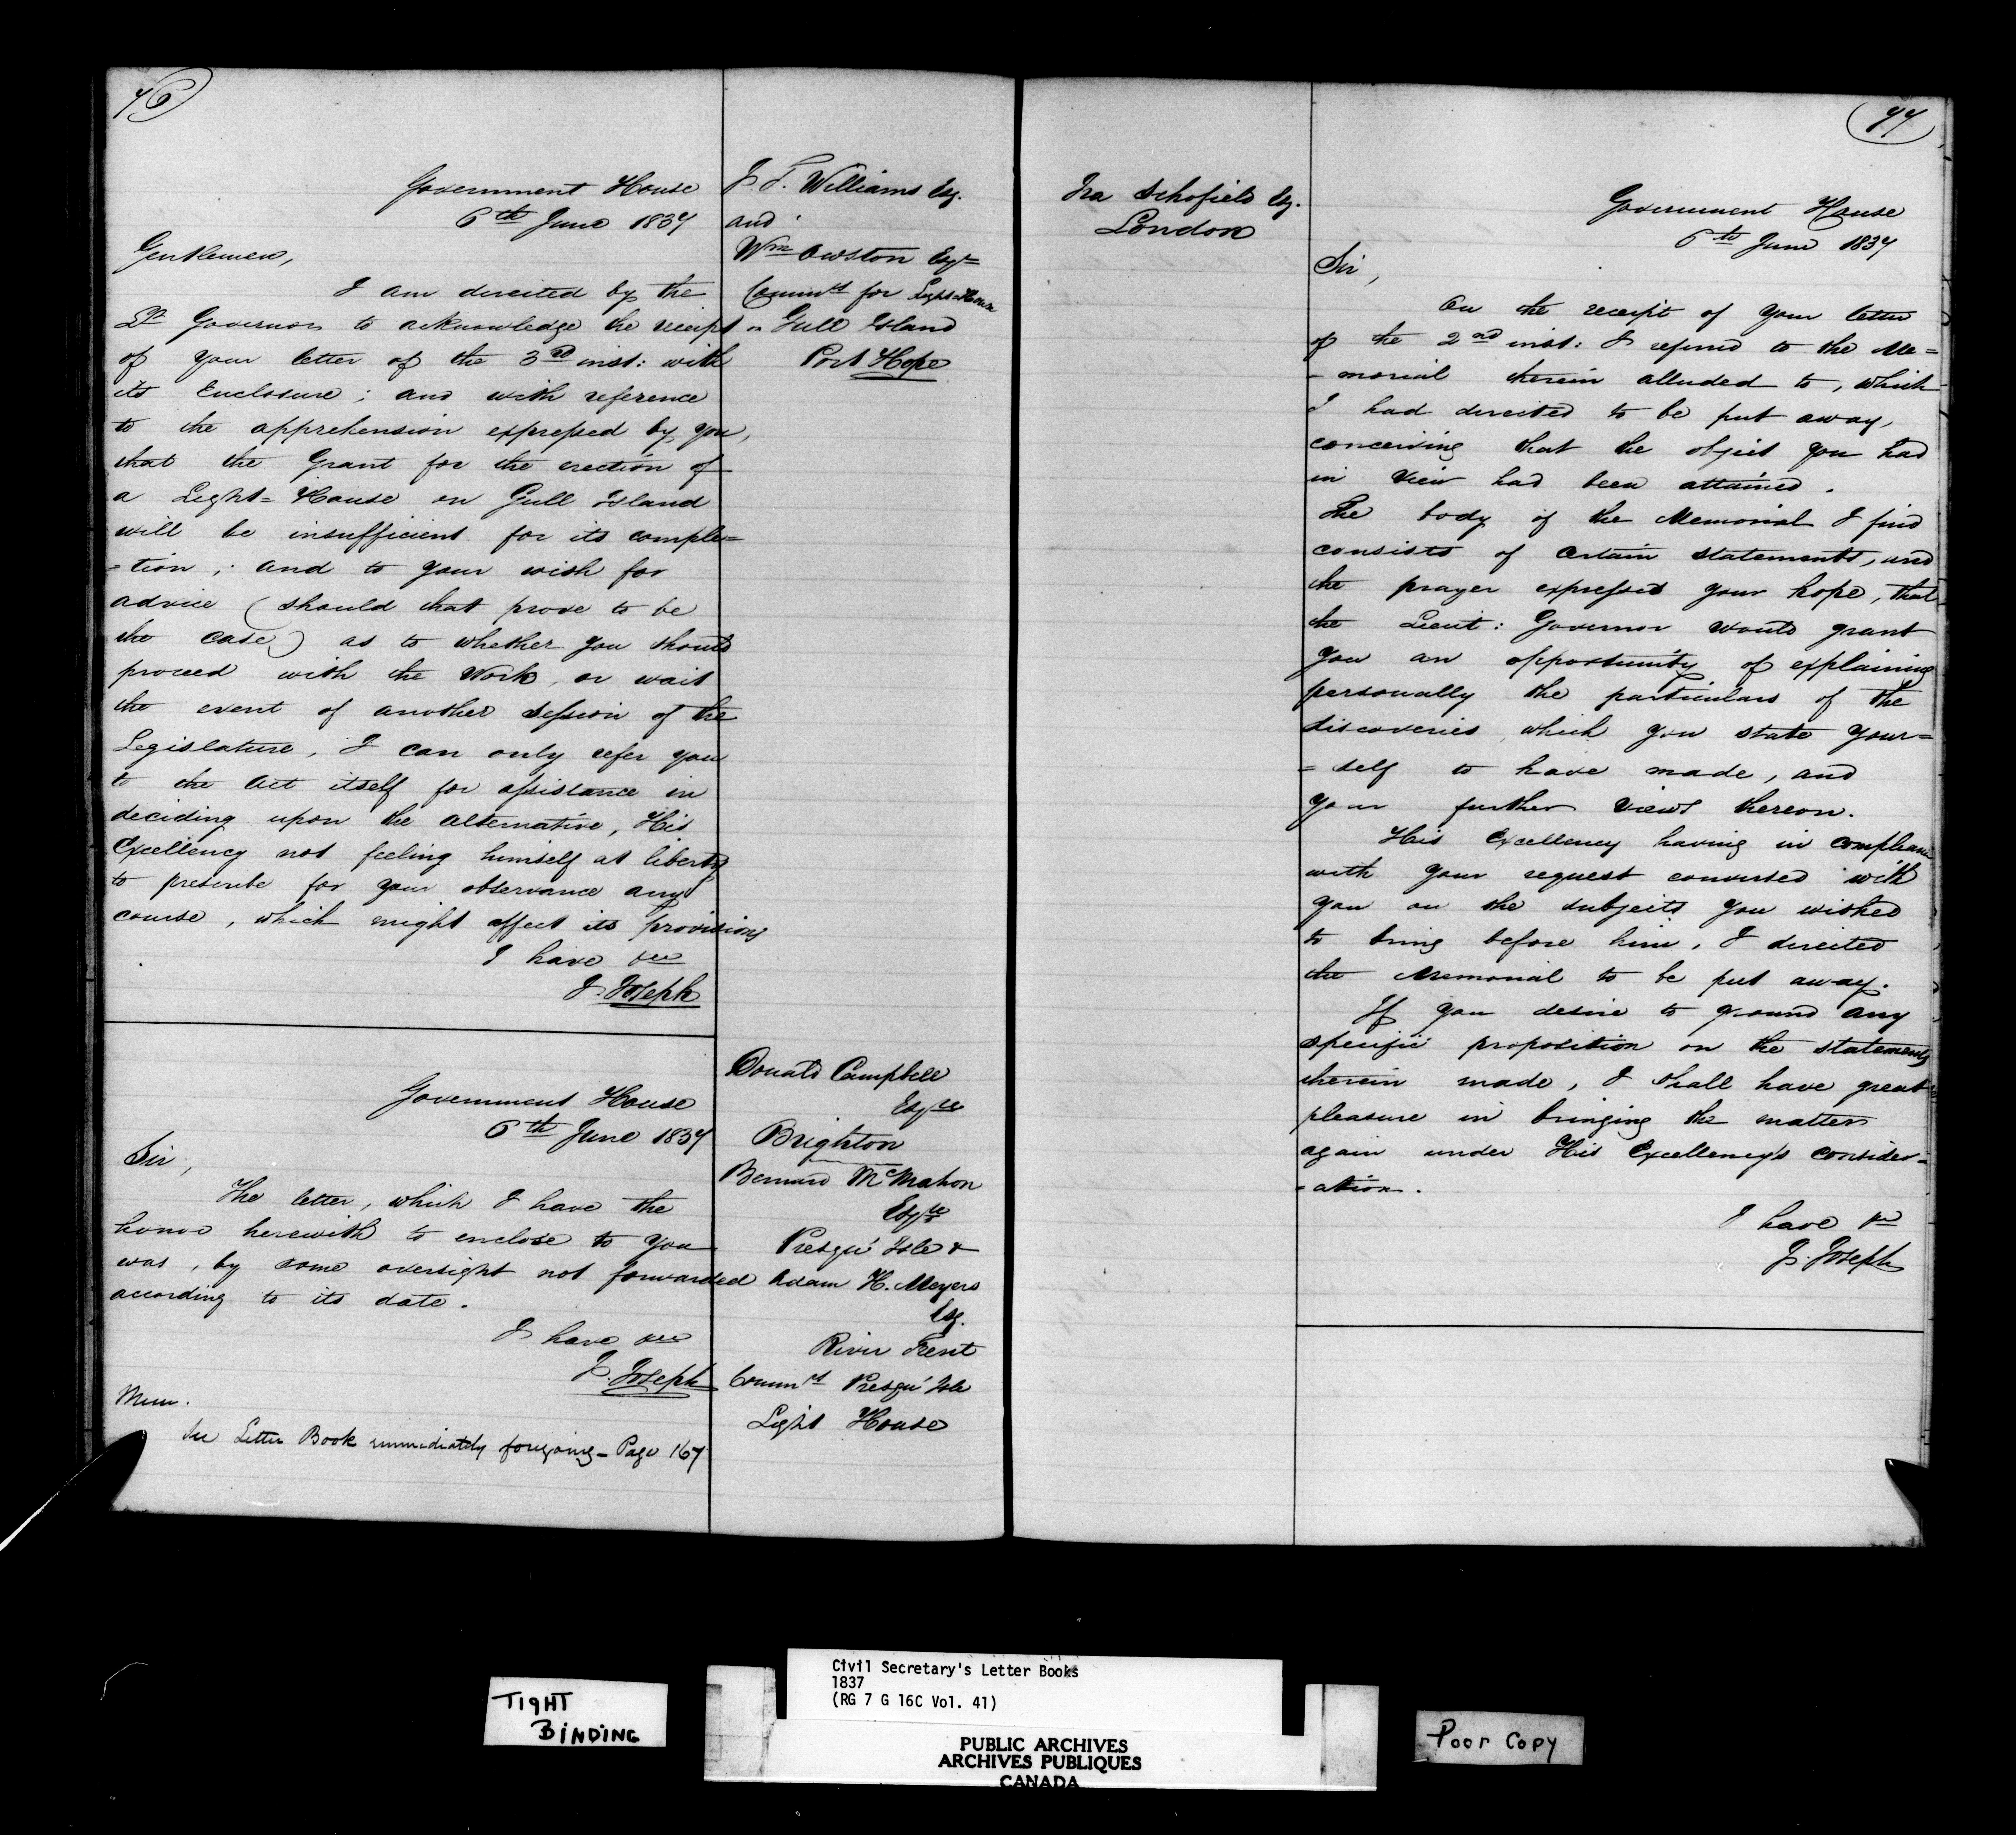 76
Government House
6th June 1837
Gentlemen,
I am directed by the
Lt Governor to acknowledge the receipt
of your letter of the 3rd inst: with
its Enclosure; and with reference
to the apprehension expressed by you,
that the Grant for the erection of
a Light=House on Gull Island
will be insufficient for its comple=
=tion; and to your wish for
advice (should that prove to be
the case) as to whether you should
proceed with the Work, or wait
the event of another Session of the
Legislature, I can only refer you
to the Act itself for assistance in
deciding upon the alternative, His
Excellency not feeling himself at liberty
to prescribe for your observance any
course, which might affect its provisions
I have &c
J. Joseph
J. T. Williams Esq.
and
Wm Owston Esqr
Commrs for Light House
on Gull Island
Port Hope
Government House
6th June 1837
Sir,
The letter, which I have the
honor herewith to enclose to you
was, by some oversight not forwarded
according to its date.
I have &c
J. Joseph
Mem.
See Letter Book immediately foregoing - Page 167
Donald Campbell
Esqre
Brighton
Bernard McMahon
Esqre
Presqu' Isle &
Adam H. Meyers
Esq.
River Trent
Commrs Presqu' Isle
Light House
77
Ira Schofield Esq.
London
Government House
6th June 1837
Sir,
On the receipt of your letter
of the 2nd inst: I referred to the Me=
=morial therein alluded to, which
I had directed to be put away,
conceiving that the object you had
in view had been attained.
The body of the Memorial I find
consists of certain statements, and
the prayer expressed your hope, that
the Lieut: Governor would grant
you an opportunity of explaining
personally the particulars of the
discoveries which you state your=
=self to have made, and
your further views thereon.
His Excellency having in compliance
with your request conversed with
you on the subjects you wished
to bring before him, I directed
the Memorial to be put away.
If you desire to ground any
specific proposition on the statements
therein made, I shall have great
pleasure in bringing the matter
again under His Excellency's consider=
=ation.
I have &c
J. Joseph
TIGHT
BINDING
Civil Secretary's Letter Books
1837
(RG 7 G 16C Vol. 41)
PUBLIC ARCHIVES
ARCHIVES PUBLIQUES
CANADA
Poor Copy